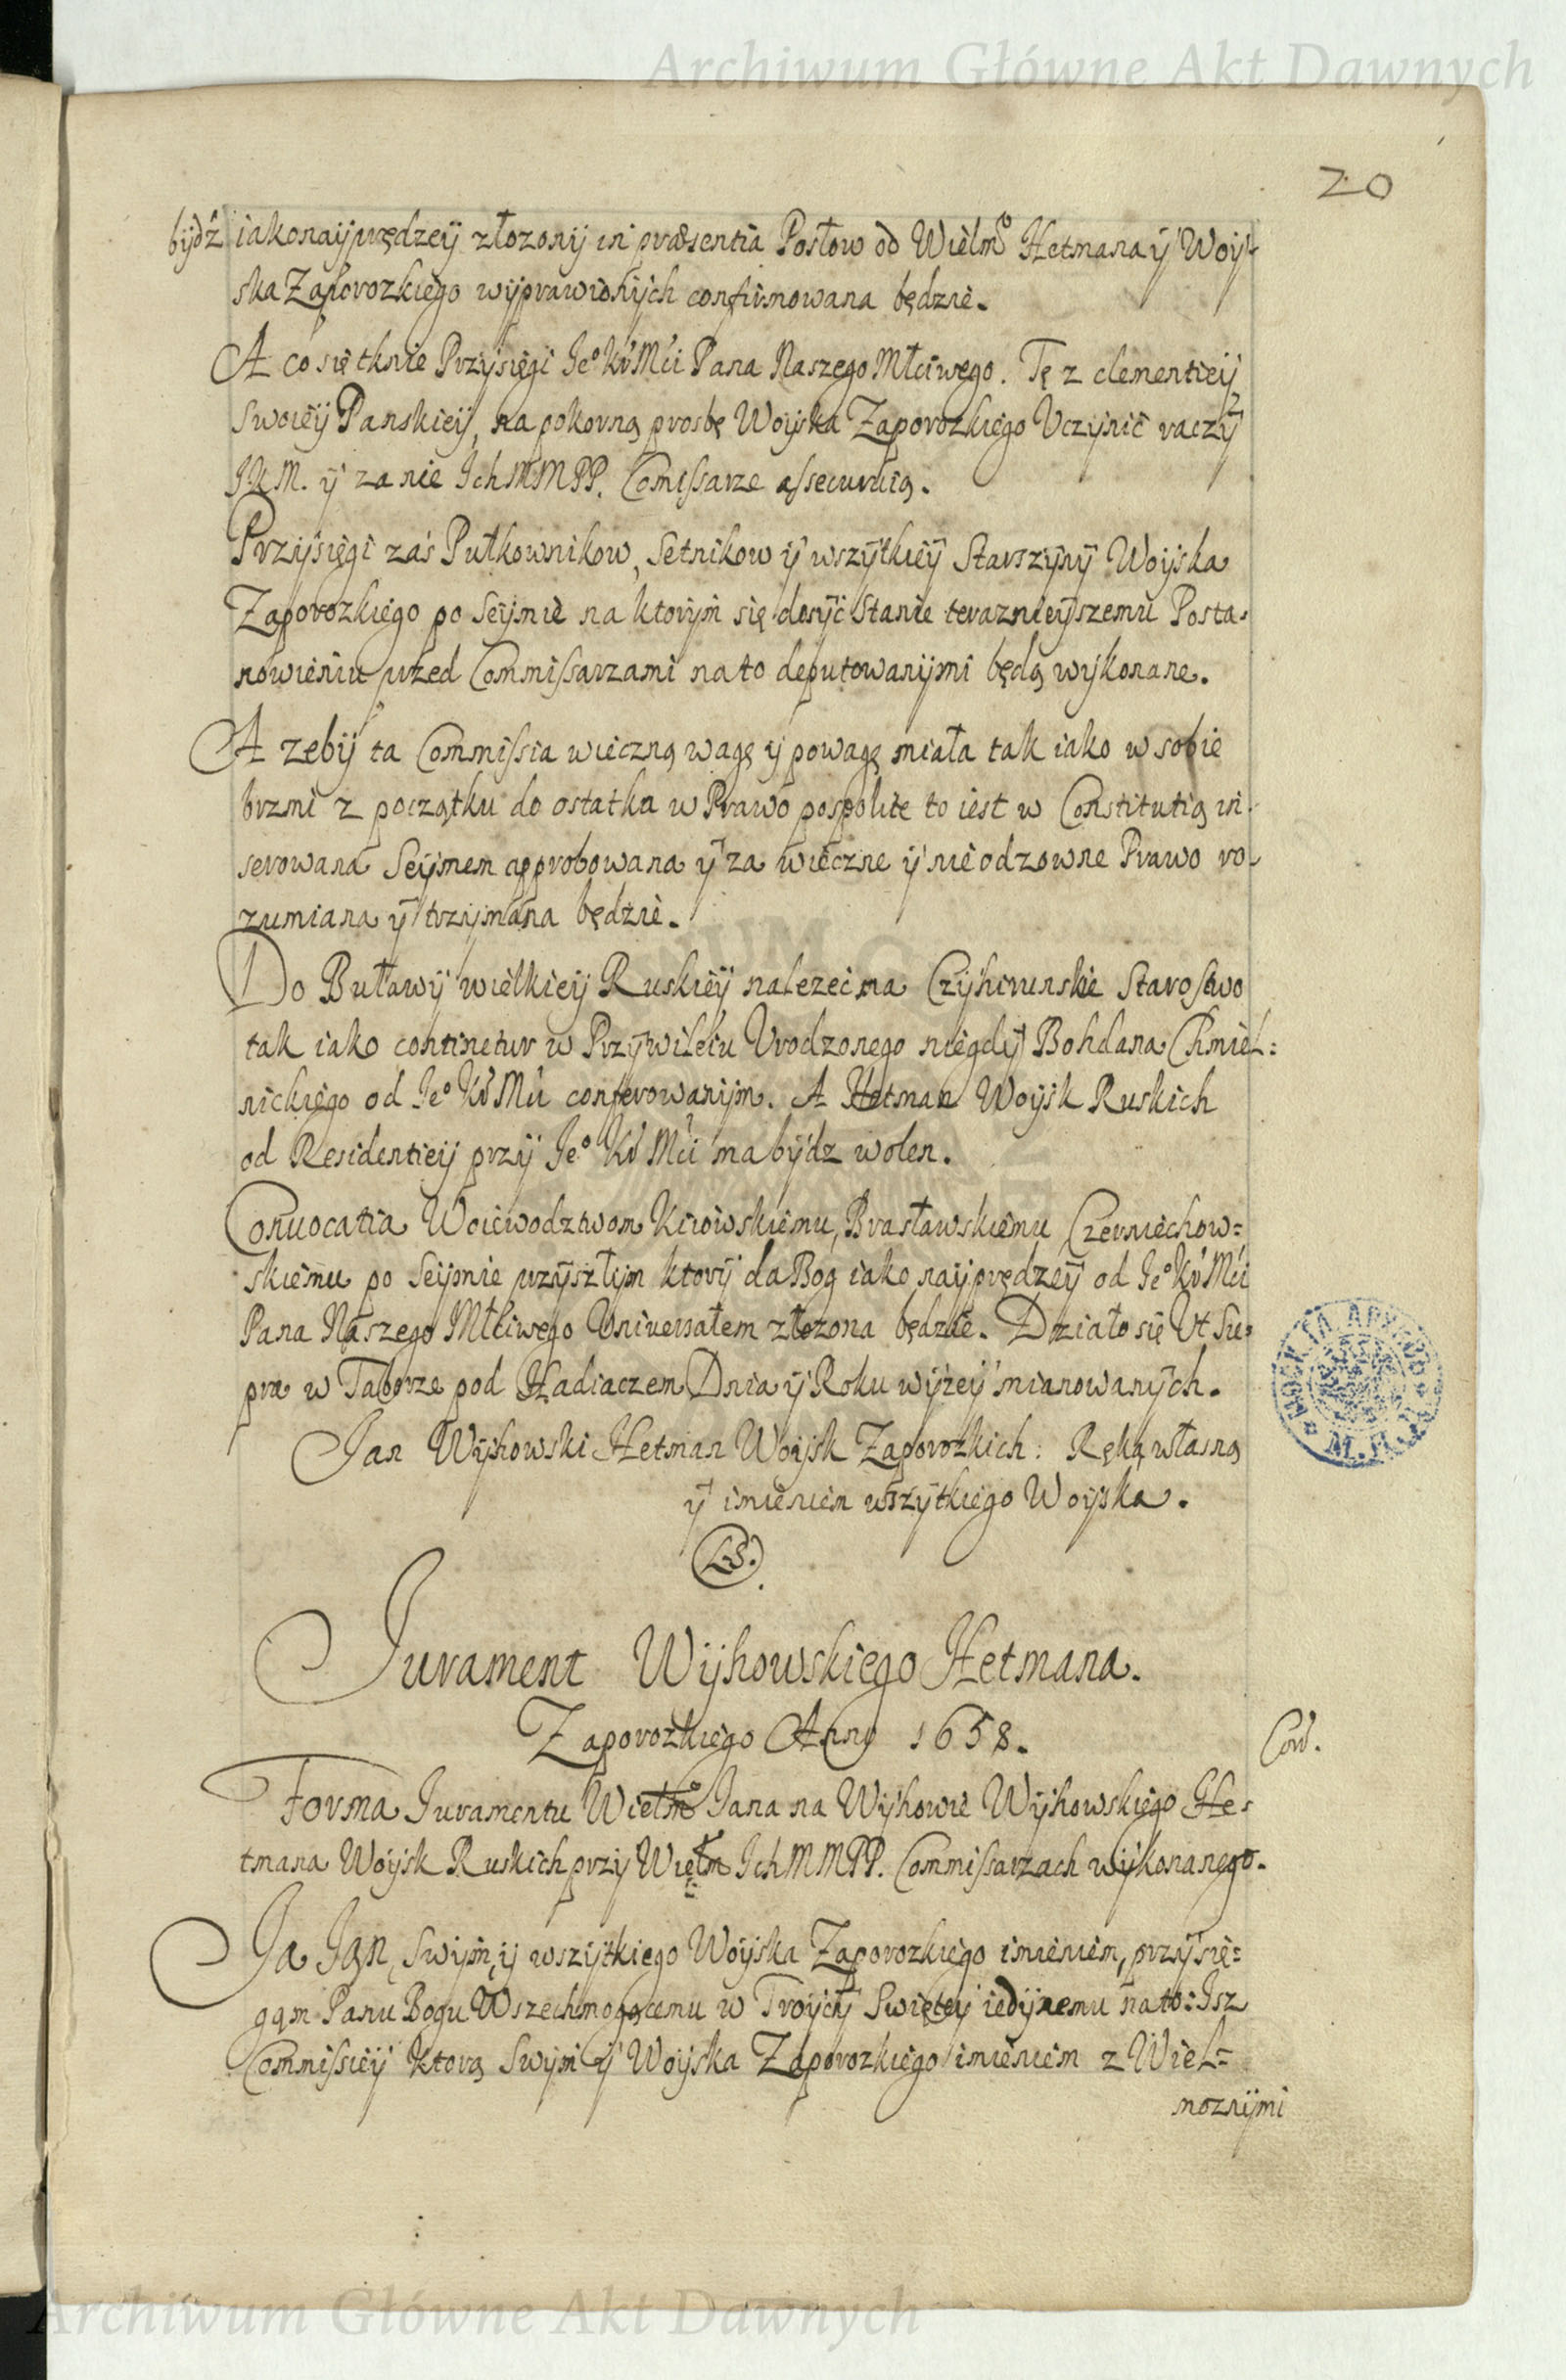 Archiwum Główne Akt Dawnych
20
bydź iakonayprędzey złozony in præsentia Posłow od Wielmo Hetmana y Woy-
ska Zaporozkiego wyprawionych confirmowana będzie.
A co się tknie Przysięgi Jeo Kr Mci Pana Naszego Młciwego. Tę z clementiey
Swoiey Panskiey, na pokorną prosbę Woyska Zaporozkiego Uczynić raczy
J K M. y za nie Ich M M PP. Comissarze assecuruią.
Przysięgi zaś Pułkownikow, Setnikow y wszytkiey Starszyny Woyska
Zaporozkiego po Seymie na ktorym się dosyć Stanie teraznieyszemu Posta-
nowieniu przed Commissarzami na to deputowanymi będą wykonane.
A zeby ta Commissia wieczną wagę y powagę miała tak iako w sobie
brzmi z początku do ostatka w Prawo pospolite to iest w Constitutią in-
serowana Seymem approbowana y za wieczne y nieodzowne Prawo ro-
zumiana y trzymana będzie.
Do Buławy wielkiey Ruskiey nalezec ma Czyhirunskie Starostwo
tak iako continetur w Przywileiu Urodzonego niegdy Bohdana Chmiel=
nickiego od Jeo Kr Mci conferowanym. A Hetman Woysk Ruskich
od Residentiey przy Jeo Kr Mci ma bydz wolen.
Conuocatia Woiewodztwom Kiiowskiemu, Brasławskiemu Czerniechow=
skiemu po Seymie przyszłym ktory da Bog iako nayprędzey od Jeo Kr Mci
Pana Naszego Młciwego Uniuersałem złozona będzie. Działo się Ut Su=
pra w Taborze pod Hadiaczem Dnia y Roku wyzey mianowanych.
Jan Wyhowski Hetman Woysk Zaporozkich: Ręką własną
y imieniem wszytkiego Woyska.
LS.
Jurament Wyhowskiego Hetmana.
Zaporozkiego Anno 1658.
Forma Juramentu Wielmo Jana na Wyhowie Wyhowskiego He-
tmana Woysk Ruskich przy Wielm Ich M M PP. Commissarzach wykonanego.
Ja Jan, Swym, y wszytkiego Woyska Zaporozkiego imieniem, przysię=
gam Panu Bogu Wszechmogącemu w Troycy Swiętey iedynemu na to: Isz
Commissiey ktorą Swym y Woyska Zaporozkiego imieniem z Wiel=
noznymi
Archiwum Główne Akt Dawnych